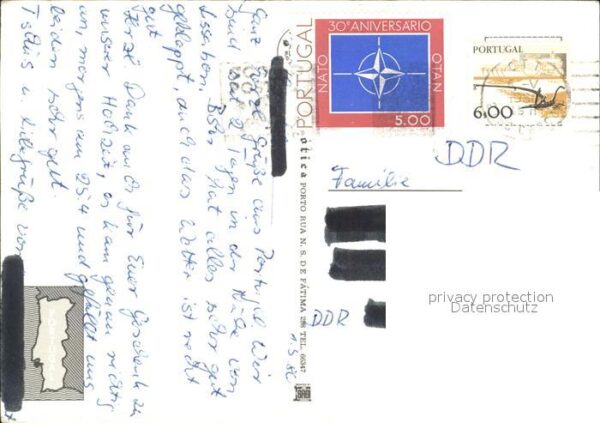 Ganz viele Grüße aus Portugal. Wir
sind seit 2 Tagen in der Nähe von
Lissabon. Bisher hat alles sehr gut
geklappt, auch das Wetter ist recht
gut.
Herzl. Dank auch für Euer Geschenk zu
unserer Hochzeit, es kam genau richtig
an, morgens am 25.4 und gefällt uns
beiden sehr gut.
Tschüs u. liebe Grüße von
PORTUGAL
30º ANIVERSÁRIO
NATO
OTAN
PORTUGAL
5.00
PORTUGAL
6.00
DDR
Familie
DDR
ótica PORTO RUA N. S. DE FÁTIMA 298 TEL. 66347
privacy protection
Datenschutz
PORTUGAL